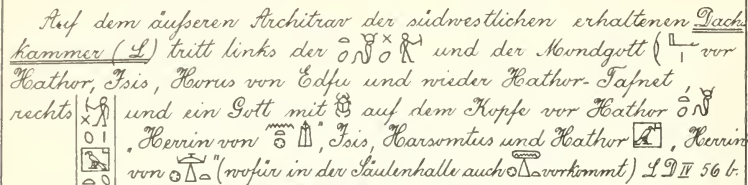 Auf dem äußeren Architrav der südwestlichen erhaltenen Dach-
kammer (L) tritt links der und der Mondgott ( vor
Hathor, Isis, Horus von Edfu und wieder Hathor-Tafnet,
rechts und ein Gott mit auf dem Kopfe vor Hathor
„Herrin von ", Isis, Harsomtus und Hathor , „Herrin
von " (wofür in der Säulenhalle auch vorkommt) LD IV 56 b.